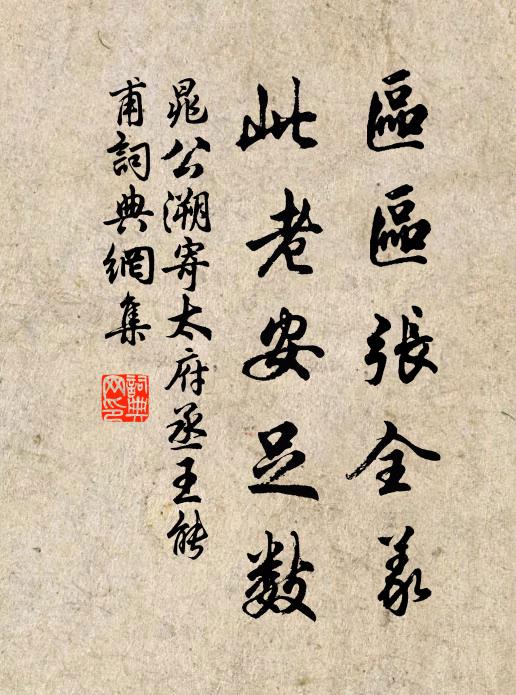 區區張全義
此老安足數
晁公溯寄太府丞王能
甫詞典網集
詞典
网印